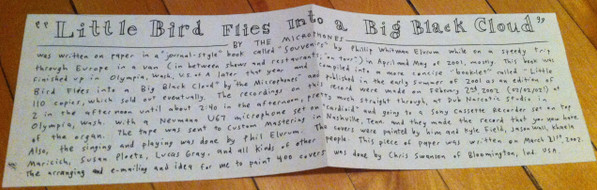 "Little Bird Flies Into a Big Black Cloud"
BY THE MICROPHONES
was written on paper in a "journal-style" book called "Souvenirs" by Phillip Whitman Elvrum while on a speedy trip
through Europe in a van (in between shows and restaurants, on tour") in April and May of 2001, mostly. This book was
finished up in Olympia, Wash, U.S. of A later that year and compiled into a more concise "booklet" called "Little
Bird Flies into a Big Black Cloud" by "the Microphones" and published in the early summer of 2001 as an edition of
110 copies, which sold out eventually. The recordings on this record were made on February 2nd, 2002 (02/02/02) at
2 in the afternoon until about 2:40 in the afternoon, pretty much straight through, at Dub Narcotic Studio in
Olympia, Wash. with a Neumann U67 microphone set on "cardioid" and going to a Sony Cassette Recorder set on top
of the organ. The tape was sent to Custom Mastering in Nashville, Tenn. and they made the record that you now have
Also, the singing and playing was done by Phil Elvrum. The covers were painted by him and Kyle Field, Jason Wall, Khaela
Maricich, Susan Ploetz, Lucas Gray, and all kinds of other people. This piece of paper was written on March 21st, 2002.
The arranging and e-mailing and idea for me to paint 400 covers was done by Chris Swanson of Bloomington, Ind. USA.